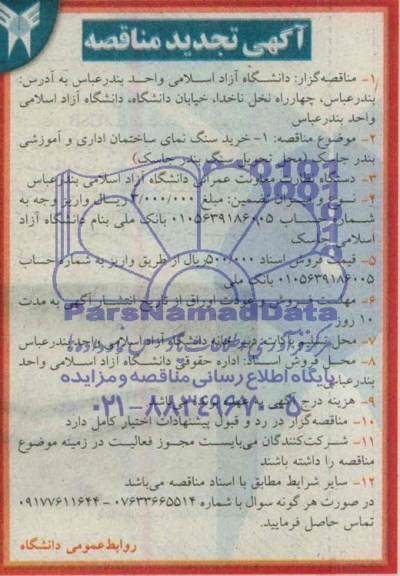 آگهی تجدید مناقصه
۱- مناقصه‌گزار: دانشگاه آزاد اسلامی واحد بندرعباس به آدرس:
بندرعباس، چهارراه نخل ناخدا، خیابان دانشگاه، دانشگاه آزاد اسلامی
واحد بندرعباس
۲- موضوع مناقصه: ۱- خرید سنگ نمای ساختمان اداری و آموزشی
بندر جاسک (محل تحویل سنگ بندر جاسک)
۳- دستگاه نظارت: معاونت عمرانی دانشگاه آزاد اسلامی بندرعباس
۴- نوع و میزان تضمین: مبلغ ۳/۰۰۰/۰۰۰ ریال واریز وجه به
شماره حساب ۰۱۰۵۶۳۹۱۸۶۰۰۵ بانک ملی بنام دانشگاه آزاد
اسلامی جاسک
۵- قیمت فروش اسناد ۵۰۰/۰۰۰ ریال از طریق واریز به شماره حساب
۰۱۰۵۶۳۹۱۸۶۰۰۵ بانک ملی
۶- مهلت فروش و عودت اوراق از تاریخ انتشار آگهی به مدت
۱۰ روز
ParsNamadData
۷- محل تسلیم پاکات: دبیرخانه دانشگاه آزاد اسلامی واحد بندرعباس
۸- محل فروش اسناد: اداره حقوقی دانشگاه آزاد اسلامی واحد
بندرعباس
پایگاه اطلاع رسانی مناقصه و مزایده
۹- هزینه درج آگهی به عهده برنده می‌باشد
۰۲۱-۸۸۳۴۹۶۷۰-۵
۱۰- مناقصه‌گزار در رد و قبول پیشنهادات اختیار کامل دارد
۱۱- شرکت‌کنندگان می‌بایست مجوز فعالیت در زمینه موضوع
مناقصه را داشته باشند
۱۲- سایر شرایط مطابق با اسناد مناقصه می‌باشد
در صورت هر گونه سوال با شماره ۰۷۶۳۳۶۶۵۵۱۴ - ۰۹۱۷۷۶۱۱۶۴۴
تماس حاصل فرمایید.
روابط عمومی دانشگاه